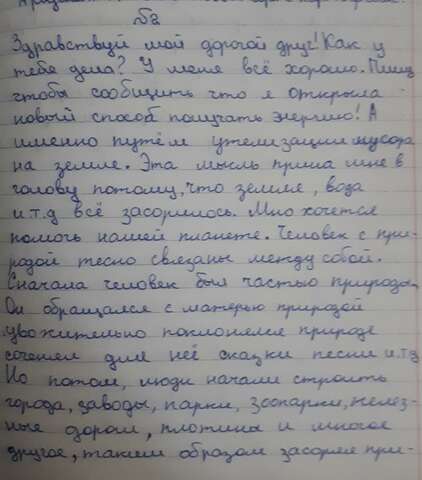 №2
Здравствуй мой дорогой друг! Как у
тебе дела? У меня всё хорошо. Пишу
чтобы сообщить что я открыла
новый способ получать энергию! А
именно путём утелизации мусора
на земле. Эта мысль пришла мне в
голову потому, что земля, вода
и т.д всё засорилось. Мно хочется
помочь нашей планете. Человек с при-
родой тесно связаны между собой.
Сначала человек был частью природы.
Он обращался с матерью природой
увожительно поклонялся природе
сочинял для неё сказки песни и.т.д
Но потом, люди начали строить
города, заводы, парки, зоопарки, желез-
ные дороги, плотины и многое
другое, таким образом засоряя при-